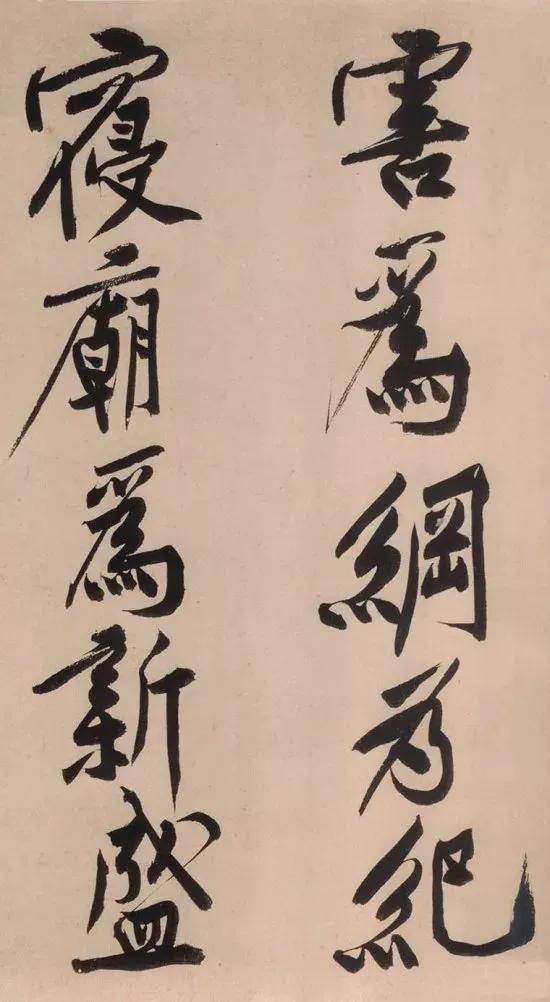 害爲綱为紀
寢廟爲新盛